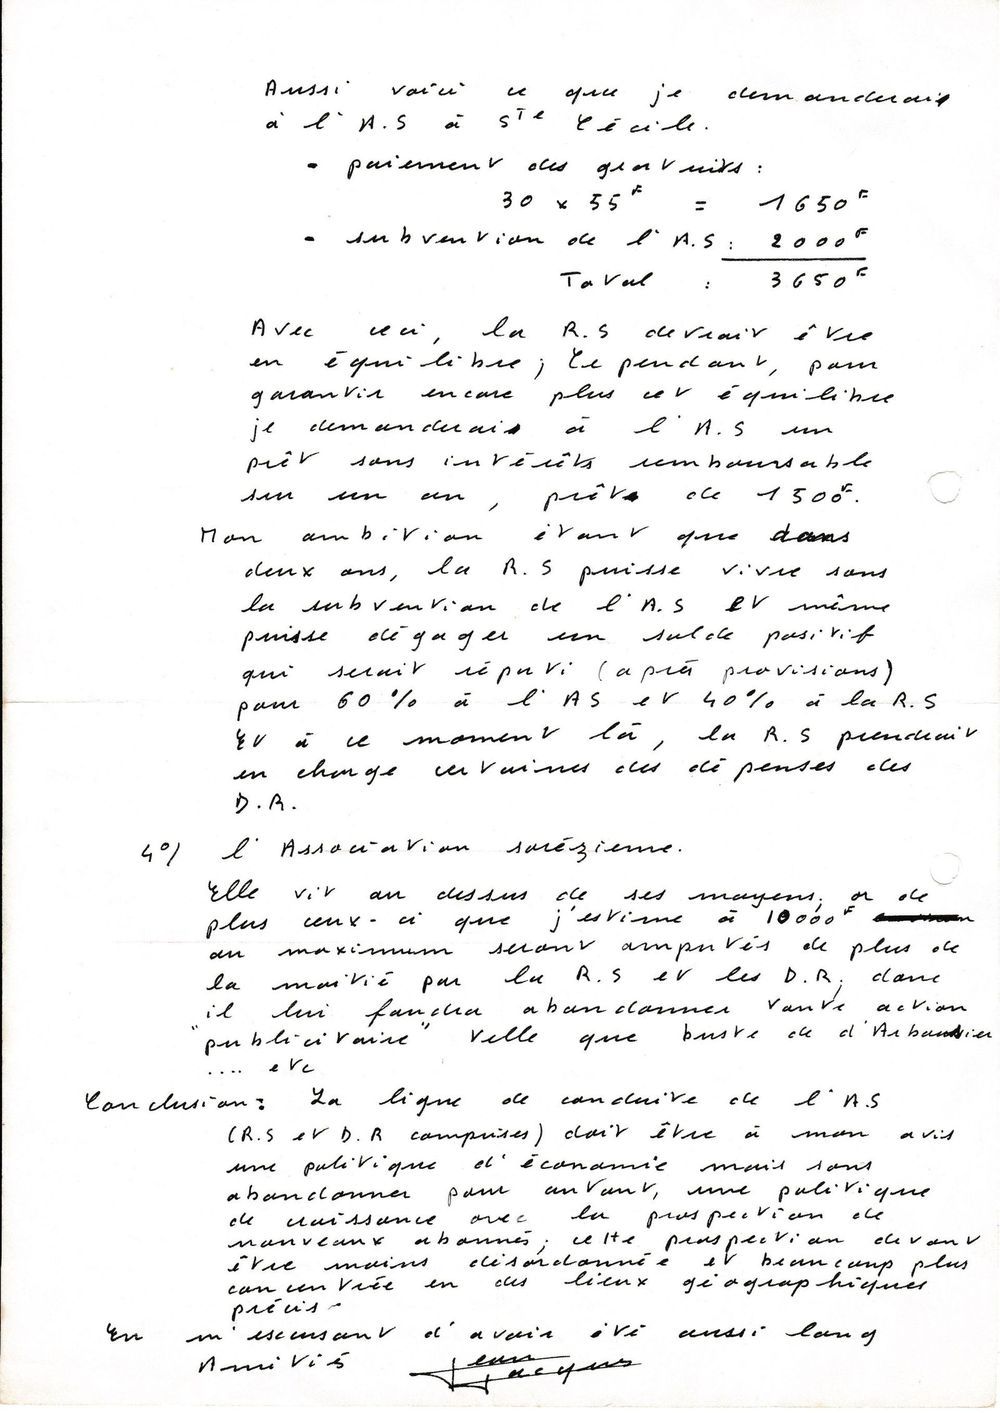 Aussi voici ce que je demanderais
à l'A.S à Ste Cécile.
- paiement des gratuits :
30 x 55F = 1650F
- subvention de l'A.S : 2000F
Total : 3650F
Avec ceci, la R.S devrait être
en équilibre ; Cependant, pour
garantir encore plus cet équilibre
je demanderais à l'A.S un
prêt sans intérêts remboursable
sur un an, prêt de 1500F.
Mon ambition étant que dans
deux ans, la R.S puisse vivre sans
la subvention de l'A.S et même
puisse dégager un solde positif
qui serait réparti (après provisions)
pour 60% à l'AS et 40% à la R.S
Et à ce moment là, la R.S prendrait
en charge certaines des dépenses des
D.R.
4°/ l'Association sorézienne.
Elle vit au dessus de ses moyens, or de
plus ceux-ci que j'estime à 10000F
au maximum seront amputés de plus de
la moitié par la R.S et les D.R; donc
il lui faudra abandonner toute action
"publicitaire" telle que buste de d'Arbaussier
.... etc
Conclusion : La ligne de conduite de l'A.S
(R.S et D.R comprises) doit être à mon avis
une politique d'économie mais sans
abandonner pour autant, une politique
de croissance avec la prospection de
nouveaux abonnés ; cette prospection devant
être moins désordonnée et beaucoup plus
concentrée en des lieux géographiques
précis.
En m'escusant d'avoir été aussi long
Amitiés Jean
Jacques